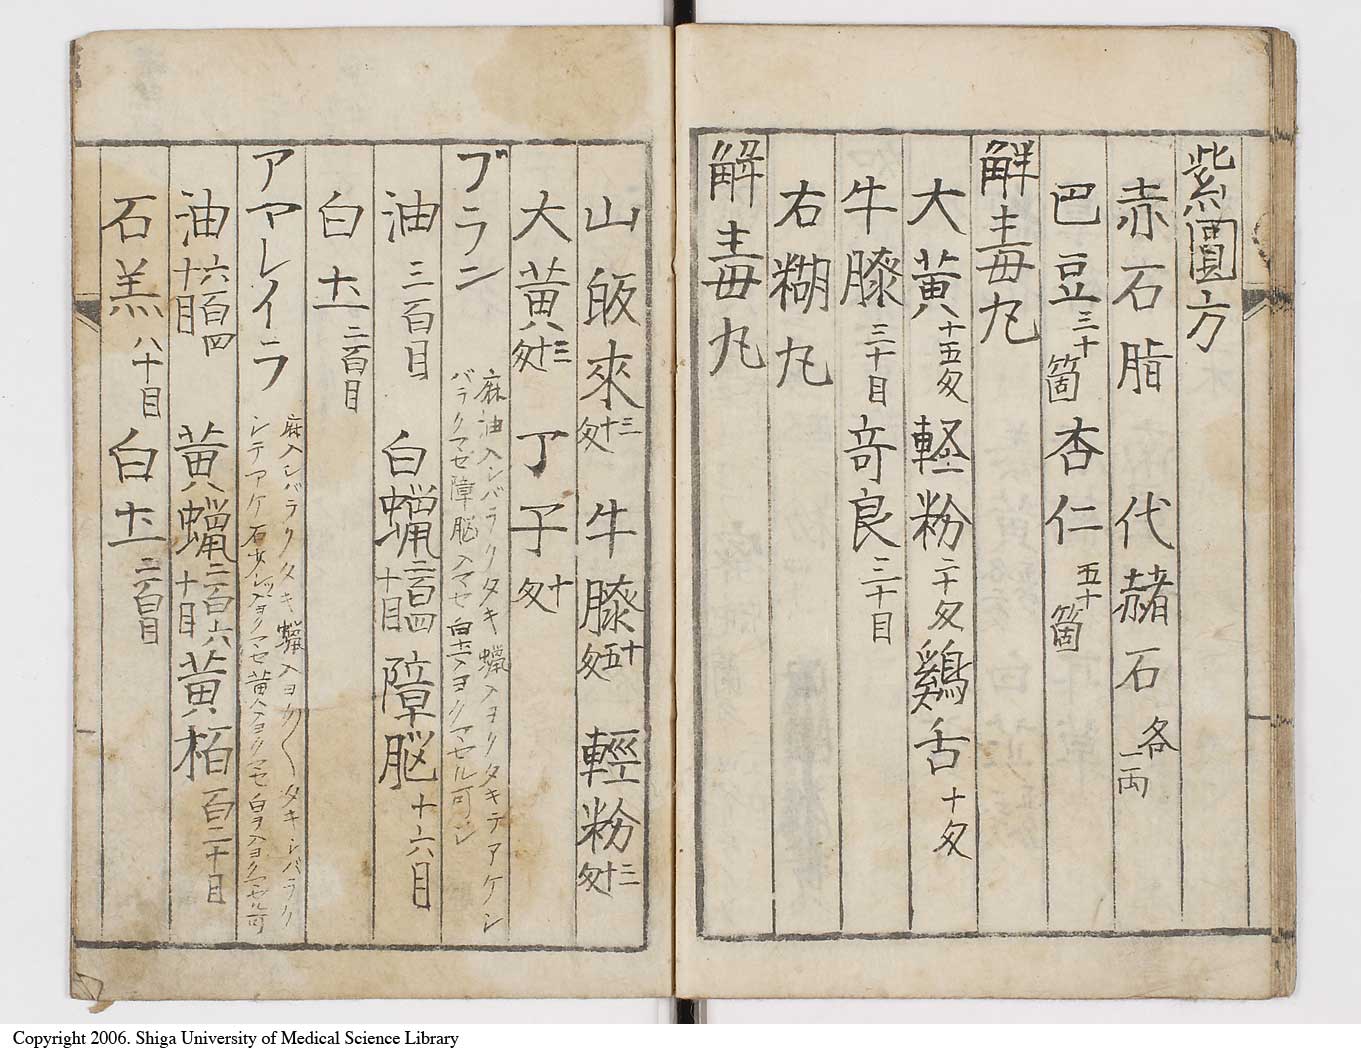 紫圓方
赤石脂 代赭石 各一両
巴豆 三十箇 杏仁 五十箇
解毒丸
大黄 十五匁 軽粉 二十匁 鷄舌 十匁
牛膝 三十目 奇良 三十目
右糊丸
解毒丸
山皈來 三十匁 牛膝 十五匁 輕粉 三十匁
大黄 三十匁 丁子 十匁
ブラン 麻油入シバラクタキ蠟入ヨクタキテアケシ
バラクマゼ障脳入マセ白土入ヨクマセル可シ
油 三百目 白蠟 二百四十目 障脳 十六目
白土 二百目
アヤレイラ 麻入シバラクタキ蠟入ヨク〳〵タキシバラク
シテアケ石羔入ヨクマセ黄入ヨクマセ白ヲ入ヨクマセル可
油 六百四十目 黄蠟 二百六十目 黄栢 百二十目
石羔 八十目 白土 二百目
Copyright 2006. Shiga University of Medical Science Library